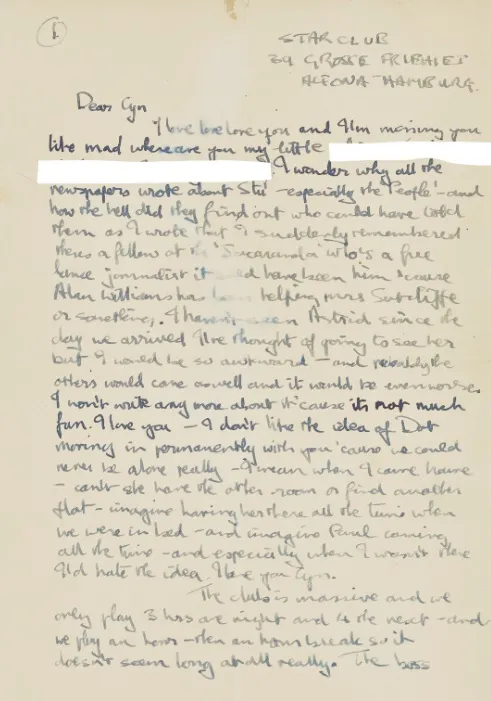 1.
STAR CLUB
39 GROSSE FREIHEIT
ALTONA-HAMBURG.
Dear Cyn
I love love love you and I'm missing you
like mad where are you my little
I wonder why all the
newspapers wrote about Stu - especially the 'People' - and
how the hell did they find out who could have told
them as I wrote that I suddenly remembered
theres a fellow at the 'Jacaranda' who's a free
lance journalist it have been him 'cause
Alan Williams has helping mrs Sutcliffe
or something. I haven't seen Astrid since the
day we arrived I've thought of going to see her
but I would be so awkward - and probably the
others would come aswell and it would be even worse.
I won't write any more about it 'cause its not much
fun. I love you - I don't like the idea of Dot
moving in permanently with you 'cause we could
never be alone really - I mean when I come home
- can't she have the other room or find another
flat - imagine having her there all the time when
we were in bed - and imagine Paul coming
all the time - and especially when I wasn't there
I'd hate the idea. I love you Cyn.
The club is massive and we
only play 3 hrs one night and 4 the next - and
we play an hour - then an hours break so it
doesn't seem long at all really. The boss